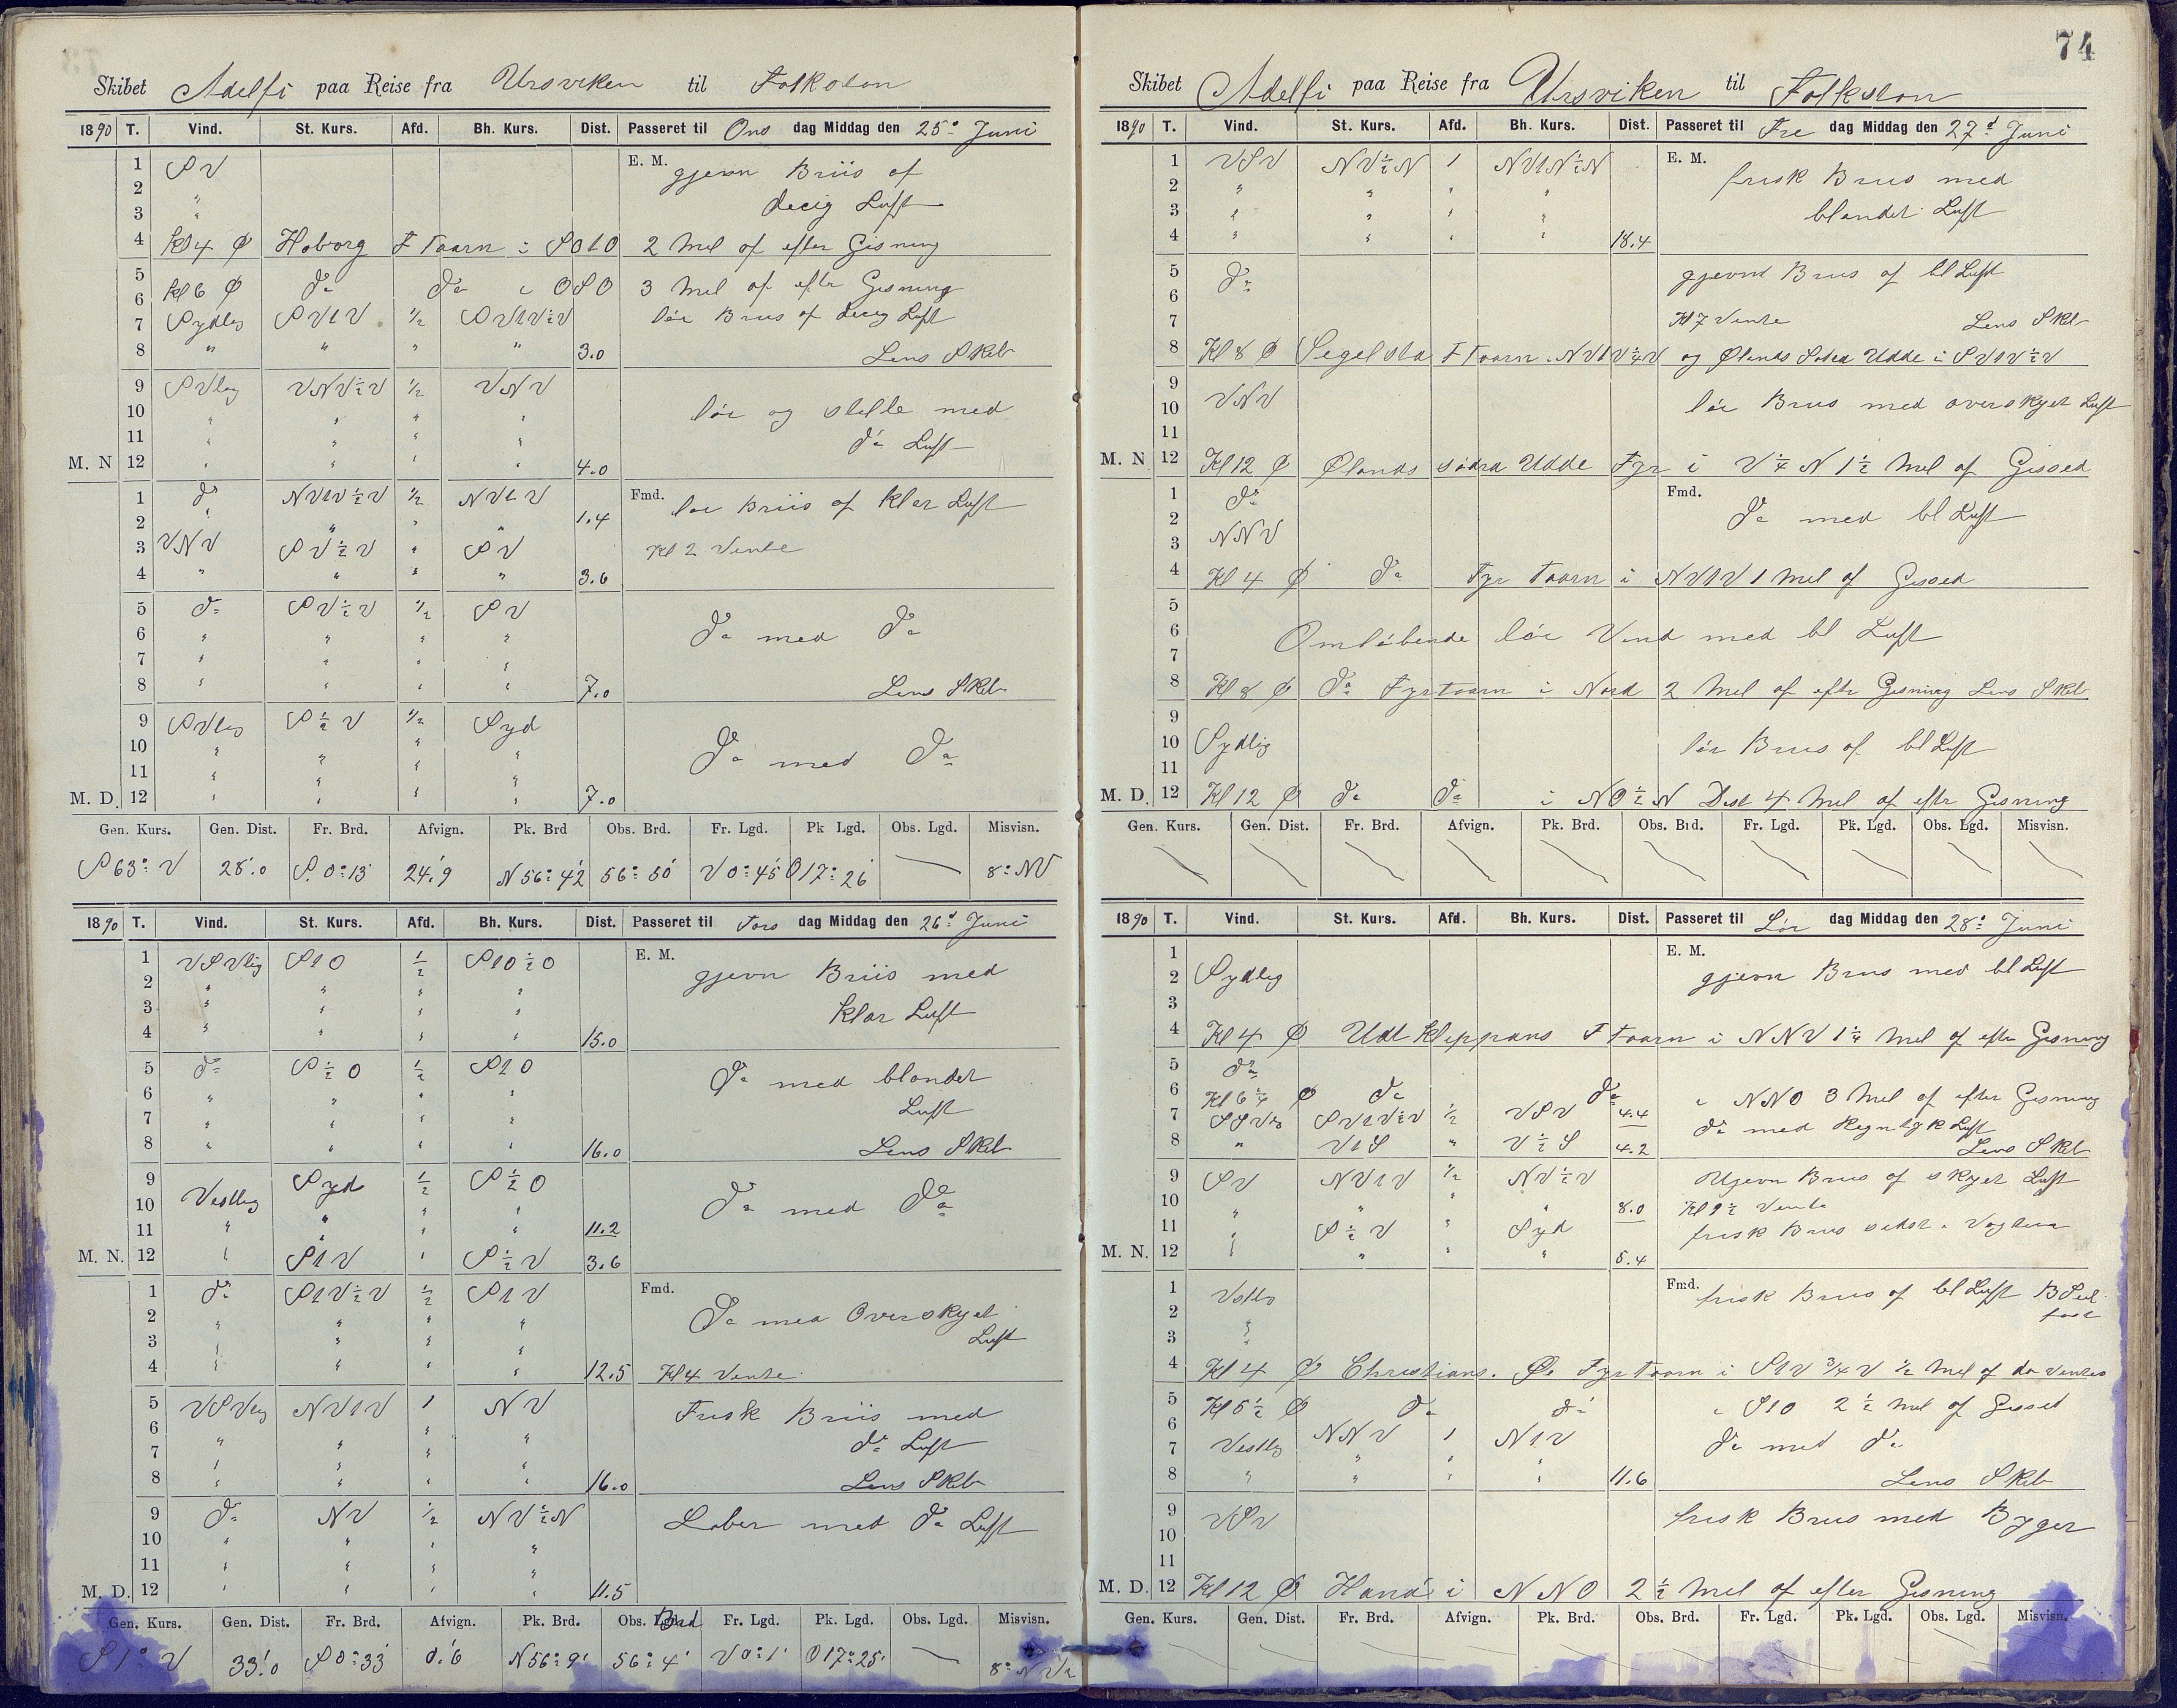 Skibet Adelfi paa Reise fra Ursviken til Folkston
1890 T. Vind. St. Kurs. Afd. Bh. Kurs. Dist. Passeret til Ons dag Middag den 25de Juni
1 SV E. M. gjevn Briis of
2 "
3 " decig Luft
4 Kl 4 Ø Hoborg F Taarn i SO1O 2 Mil of efter Gisning
5
6 Kl 6 Ø do do i OSO 3 Mil of efter Gisning
7 Sydlig SV1V ½ SV1V½V løi Briis of decig Luft
8 " " " " 3.0 Lens Skib
9 SVlig VNV½V ½ VNV
10 " " " " løi og stille med
11 " " " " do Luft
M. N 12 " " " " 4.0
1 do NV1V½V ½ NV1V Fmd. løi Briis of klar Luft
2 " " " " 1.4
3 VNV SV½V " SV Kl 2 Vente
4 " " " " 3.6
5 do SV½V ½ SV
6 " " " " do med do
7 " " " "
8 " " " " 7.0 Lens Skib
9 SVlig S½V ½ Syd
10 " " " " do med do
11 " " " "
M. D. 12 " " " " 7.0
Gen. Kurs. Gen. Dist. Fr. Brd. Afvign. Pk. Brd Obs. Brd. Fr. Lgd. Pk Lgd. Obs. Lgd. Misvisn.
S 63° V 28'.0 S. 0°13' 24'.9 N 56°42' 56°50' V 0°45' O 17°26' — 8° NV
1890 T. Vind. St. Kurs. Afd. Bh. Kurs. Dist. Passeret til Tors dag Middag den 26de Juni
1 VSVlig S1O ½ S1O½O E. M. gjevn Briis med
2 " " " "
3 " " " " klar Luft
4 " " " " 15.0
5 do S½O ½ S1O do med blandet
6 " " " "
7 " " " " Luft
8 " " " " 16.0 Lens Skib
9 Syd ½ S½O
10 Vestlig " " " do med do
11 " " " " 11.2
M. N. 12 " S1V " S½V 3.6
1 do S1V½V ½ S1V Fmd.
2 " " " " do med Overskyet
3 " " " " Luft
4 " " " " 12.5 Kl 4 Vente
5 VSVlig NV1V 1 NV Frisk Briis med
6 " " " "
7 " " " " do Luft
8 " " " " 16.0 Lens Skib
9 do NV ½ NV½N Laber med do Luft
10 " " " "
11 " " " "
M. D. 12 " " " " 11.5
Gen. Kurs. Gen. Dist. Fr. Brd. Afvign. Pk. Brd. Obs. Brd Fr. Lgd. Pk. Lgd. Obs. Lgd. Misvisn.
S 1° V 33'.0 S 0°33' 0'.6 N 56°9' 56°4' V 0°1' O 17°25' — 8° NV
74
Skibet Adelfi paa Reise fra Ursviken til Folkston
1890 T. Vind. St. Kurs. Afd. Bh. Kurs. Dist. Passeret til Fre dag Middag den 27de Juni
1 VSV NV½N 1 NV1N½N E. M. frisk Briis med
2 " " " "
3 " " " " blandet Luft
4 " " " " 18.4
5 do gjevnt Briis of bl Luft
6
7 Kl 7 Vente Lens Skib
8 Kl 8 Ø Segelsta F Taarn i NV1V¼V og Ølands Sødra Udde i SV1V½V
9
10 VNV løi Briis med overskyet Luft
11
M. N 12 Kl 12 Ø Ølands Södra Udde Fyr i V¼N 1½ Mil of Gisset
1 do Fmd.
2 do med bl Luft
3 NNV
4 Kl 4 Ø do Fyr Taarn i NV1V 1 Mil of Gissed
5
6 Omløbende løi Vind med bl Luft
7
8 Kl 8 Ø do Fyrtaarn i Nord 2 Mil of eftr Gisning Lens Skib
9
10 Sydlig løi Briis of bl Luft
11
M. D. 12 Kl 12 Ø do do i NO½N Dist 4 Mil of eftr Gisning
Gen. Kurs. Gen. Dist. Fr. Brd. Afvign. Pk. Brd. Obs. Brd. Fr. Lgd. Pk. Lgd. Obs. Lgd. Misvisn.
1890 T. Vind. St. Kurs. Afd. Bh. Kurs. Dist. Passeret til Lör dag Middag den 28de Juni
1 E. M.
2 Sydlig gjevn Briis med bl Luft
3
4 Kl 4 Ø Utklippans F Taarn i NNV 1¼ Mil of eftr Gisning
5 do
6 Kl 6¼ Ø do do i NNO 3 Mil of efter Gisning
7 SSVlig SV1V½V ½ VSV 4.4 do med Regntyk Luft
8 " V1S " V½S 4.2 Lens Skib
9 SV NV1V ½ NV½V Ujevn Briis of skyet Luft
10 " " " " 8.0 Kl 9½ Vente
11 " S½V " Syd frisk Briis sidst i Vagten
M. N. 12 " " " " 5.4
1 Vestlig Fmd. frisk Briis of bl Luft
2 "
3 "
4 Kl 4 Ø Christians. Øe Fyr Taarn i S1V ¾ V ½ Mil of do Ventes
5 Kl 5½ Ø do do i S1O 2½ Mil of Gisset
6 NNV 1 N1V
7 Vestlig " " " do med do
8 " " " " 11.6 Lens Skib
9 VSV frisk Briis med Byger
10
11
M. D. 12 Kl 12 Ø Hanö i NNO 2½ Mil of efter Gisning
Gen. Kurs. Gen. Dist. Fr. Brd. Afvign. Pk. Brd. Obs. Brd. Fr. Lgd. Pk. Lgd. Obs. Lgd. Misvisn.